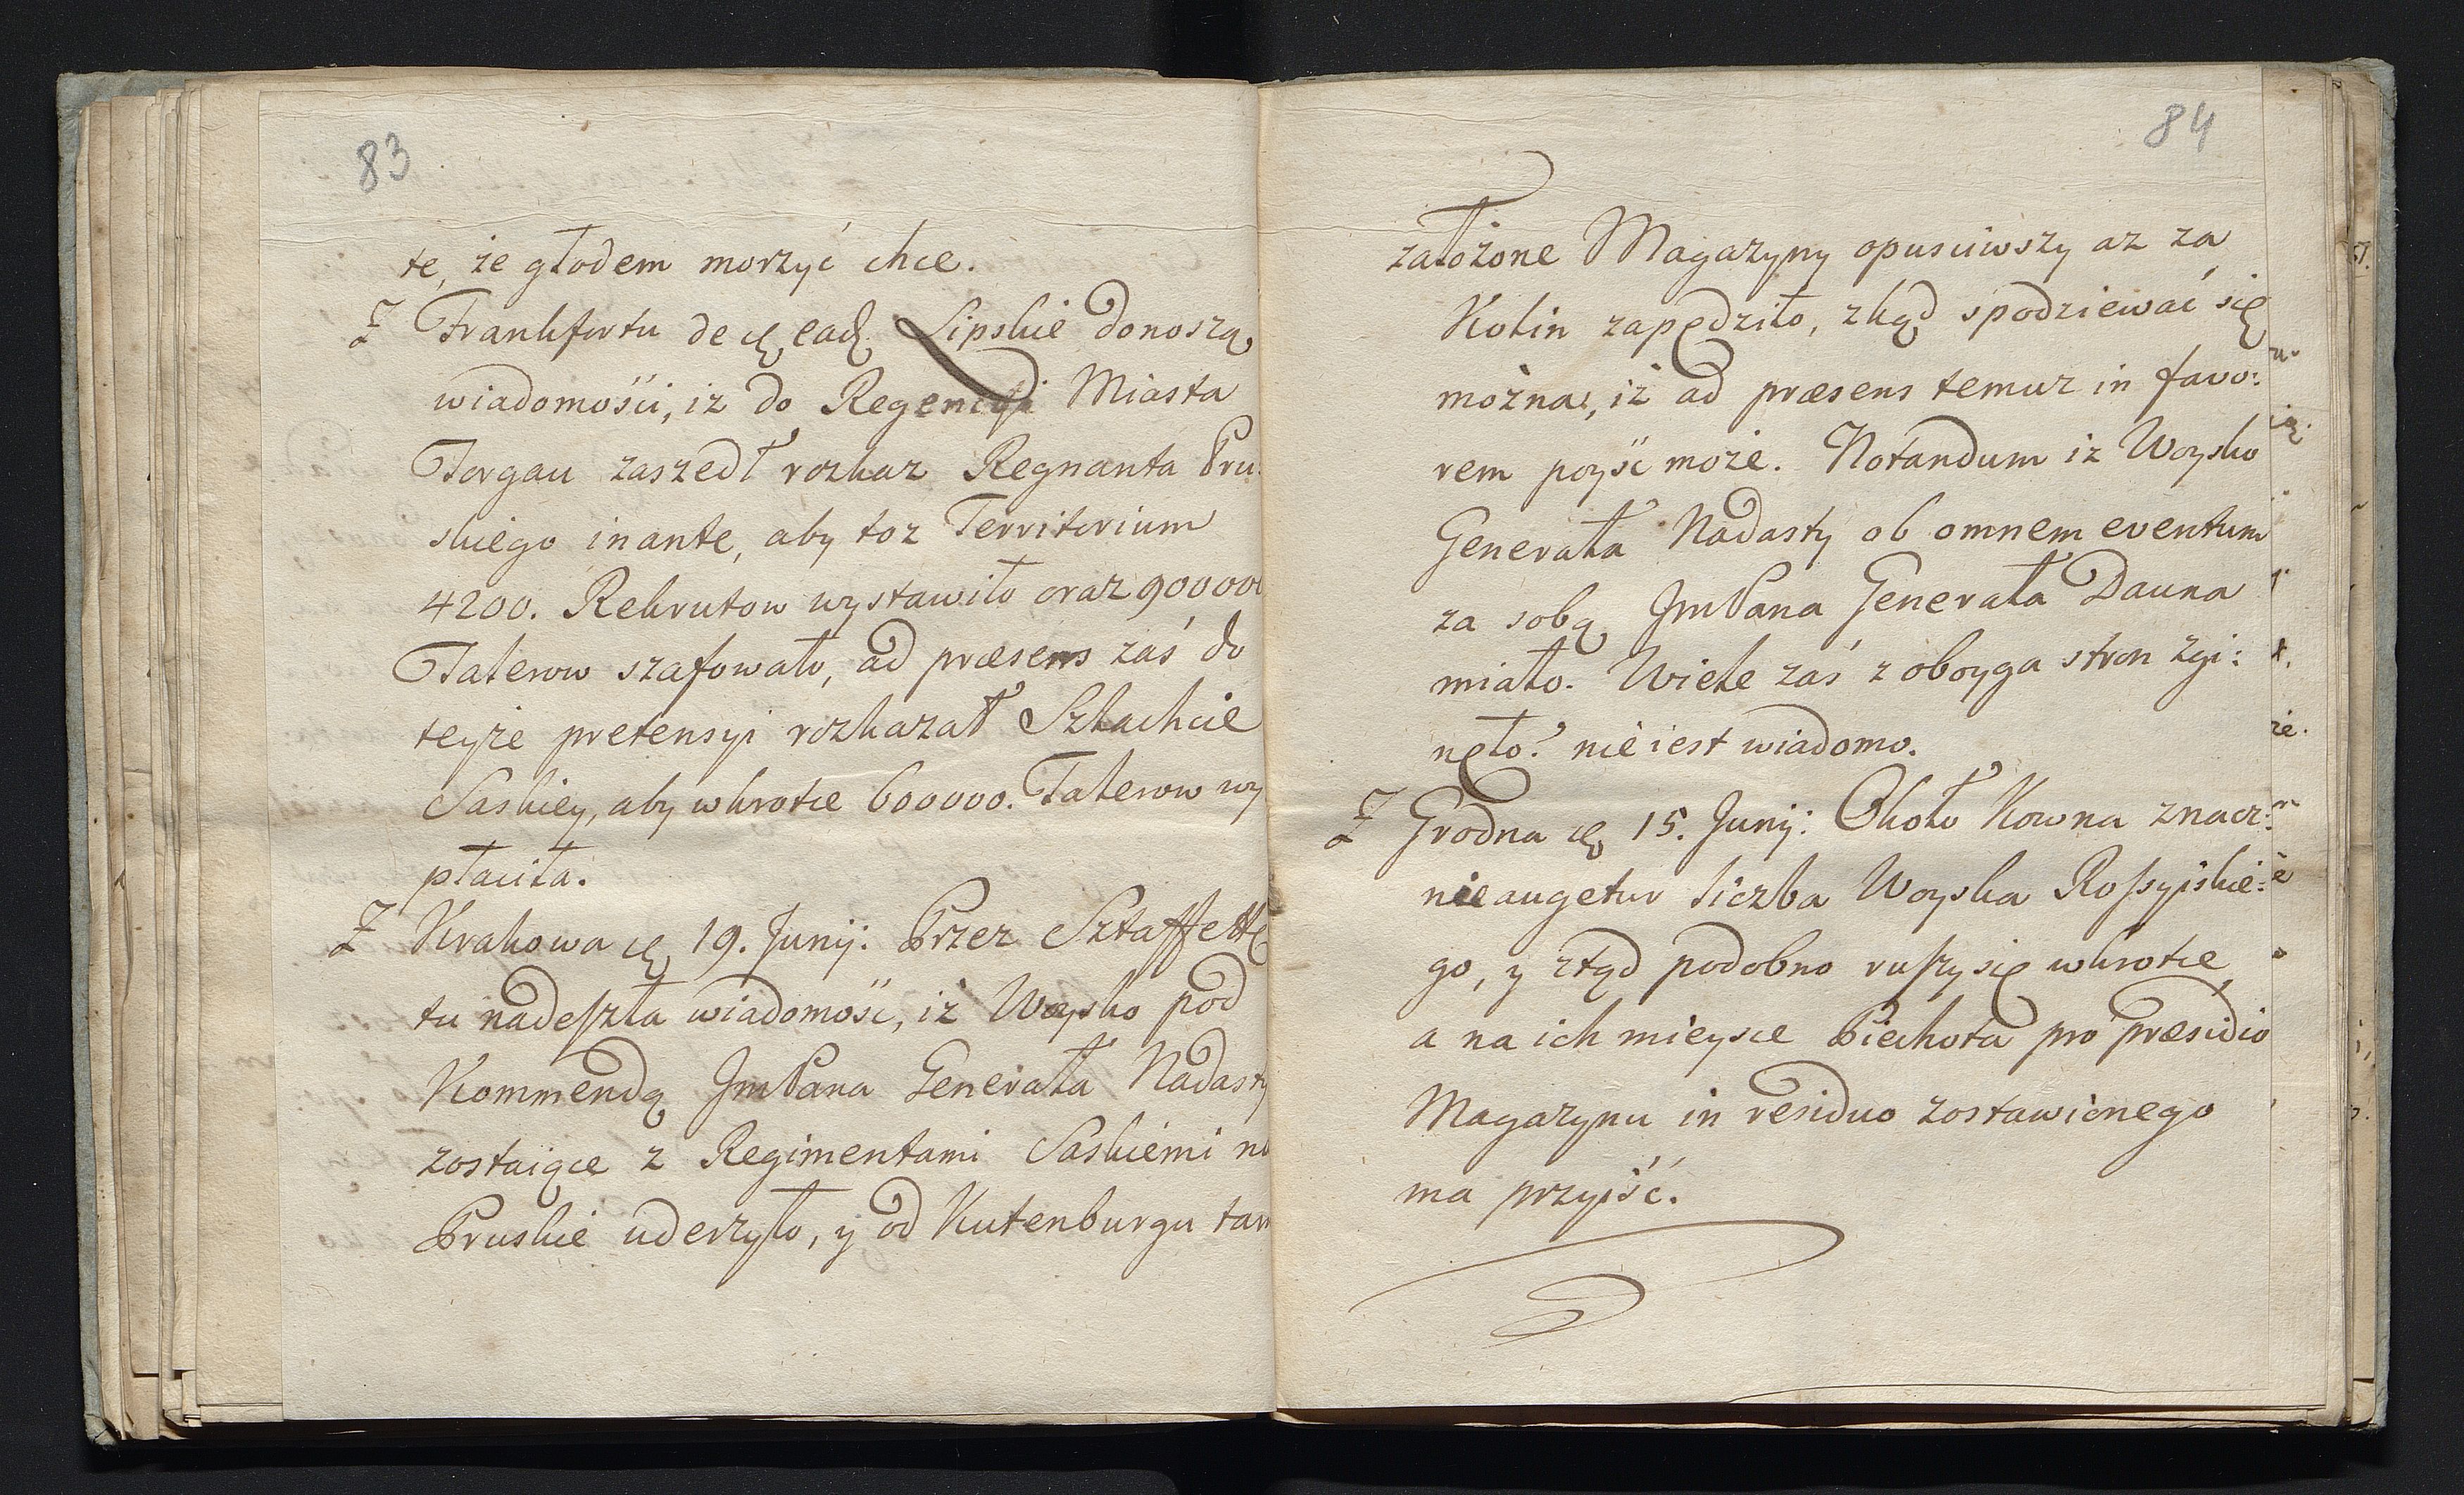 83
te, że głodem morzyć chce.
Z Frankfortu de ead. Lipskie donoszą
wiadomości, iz do Regencyi Miasta
Torgau zaszedł rozkaz Regnanta Pru
skiego inante, aby toz Territorium
4200. Rekrutow wystawiło oraz 900000
Talerow szafowało, ad præsens zaś do
teyże pretensyi rozkazał Szlachcie
Saskiey, aby wkrotce 600000. Talerow wy
płaciła.
Z Krakowa 19. Junij: Przez Sztaffettę
tu nadeszła wiadomość, iż Woysko pod
Kommendą JmPana Generała Nadasty
zostaiące z Regimentami Saskiemi na
Pruskie uderzyło, y od Kutenburgu tam
84
założone Magazyny opusciwszy az za
Kolin zapędziło, zkąd spodziewać się
można, iż ad præsens temuz in favo:
rem poyść może. Notandum iz Woysko
Generała Nadasty ob omnem eventum
za sobą JmPana Generała Dauna
miało. Wiele zaś z oboyga stron zgi:
nęło? nie iest wiadomo.
Z Grodna 15. Junij: Około Kowna znacz:
nie augetur liczba Woyska Rossyiskie:
go, y ztąd podobno ruszy się wkrotce,
a na ich mieysce Piechota pro præsidio
Magazynu in residuo zostawionego
ma przyiść.